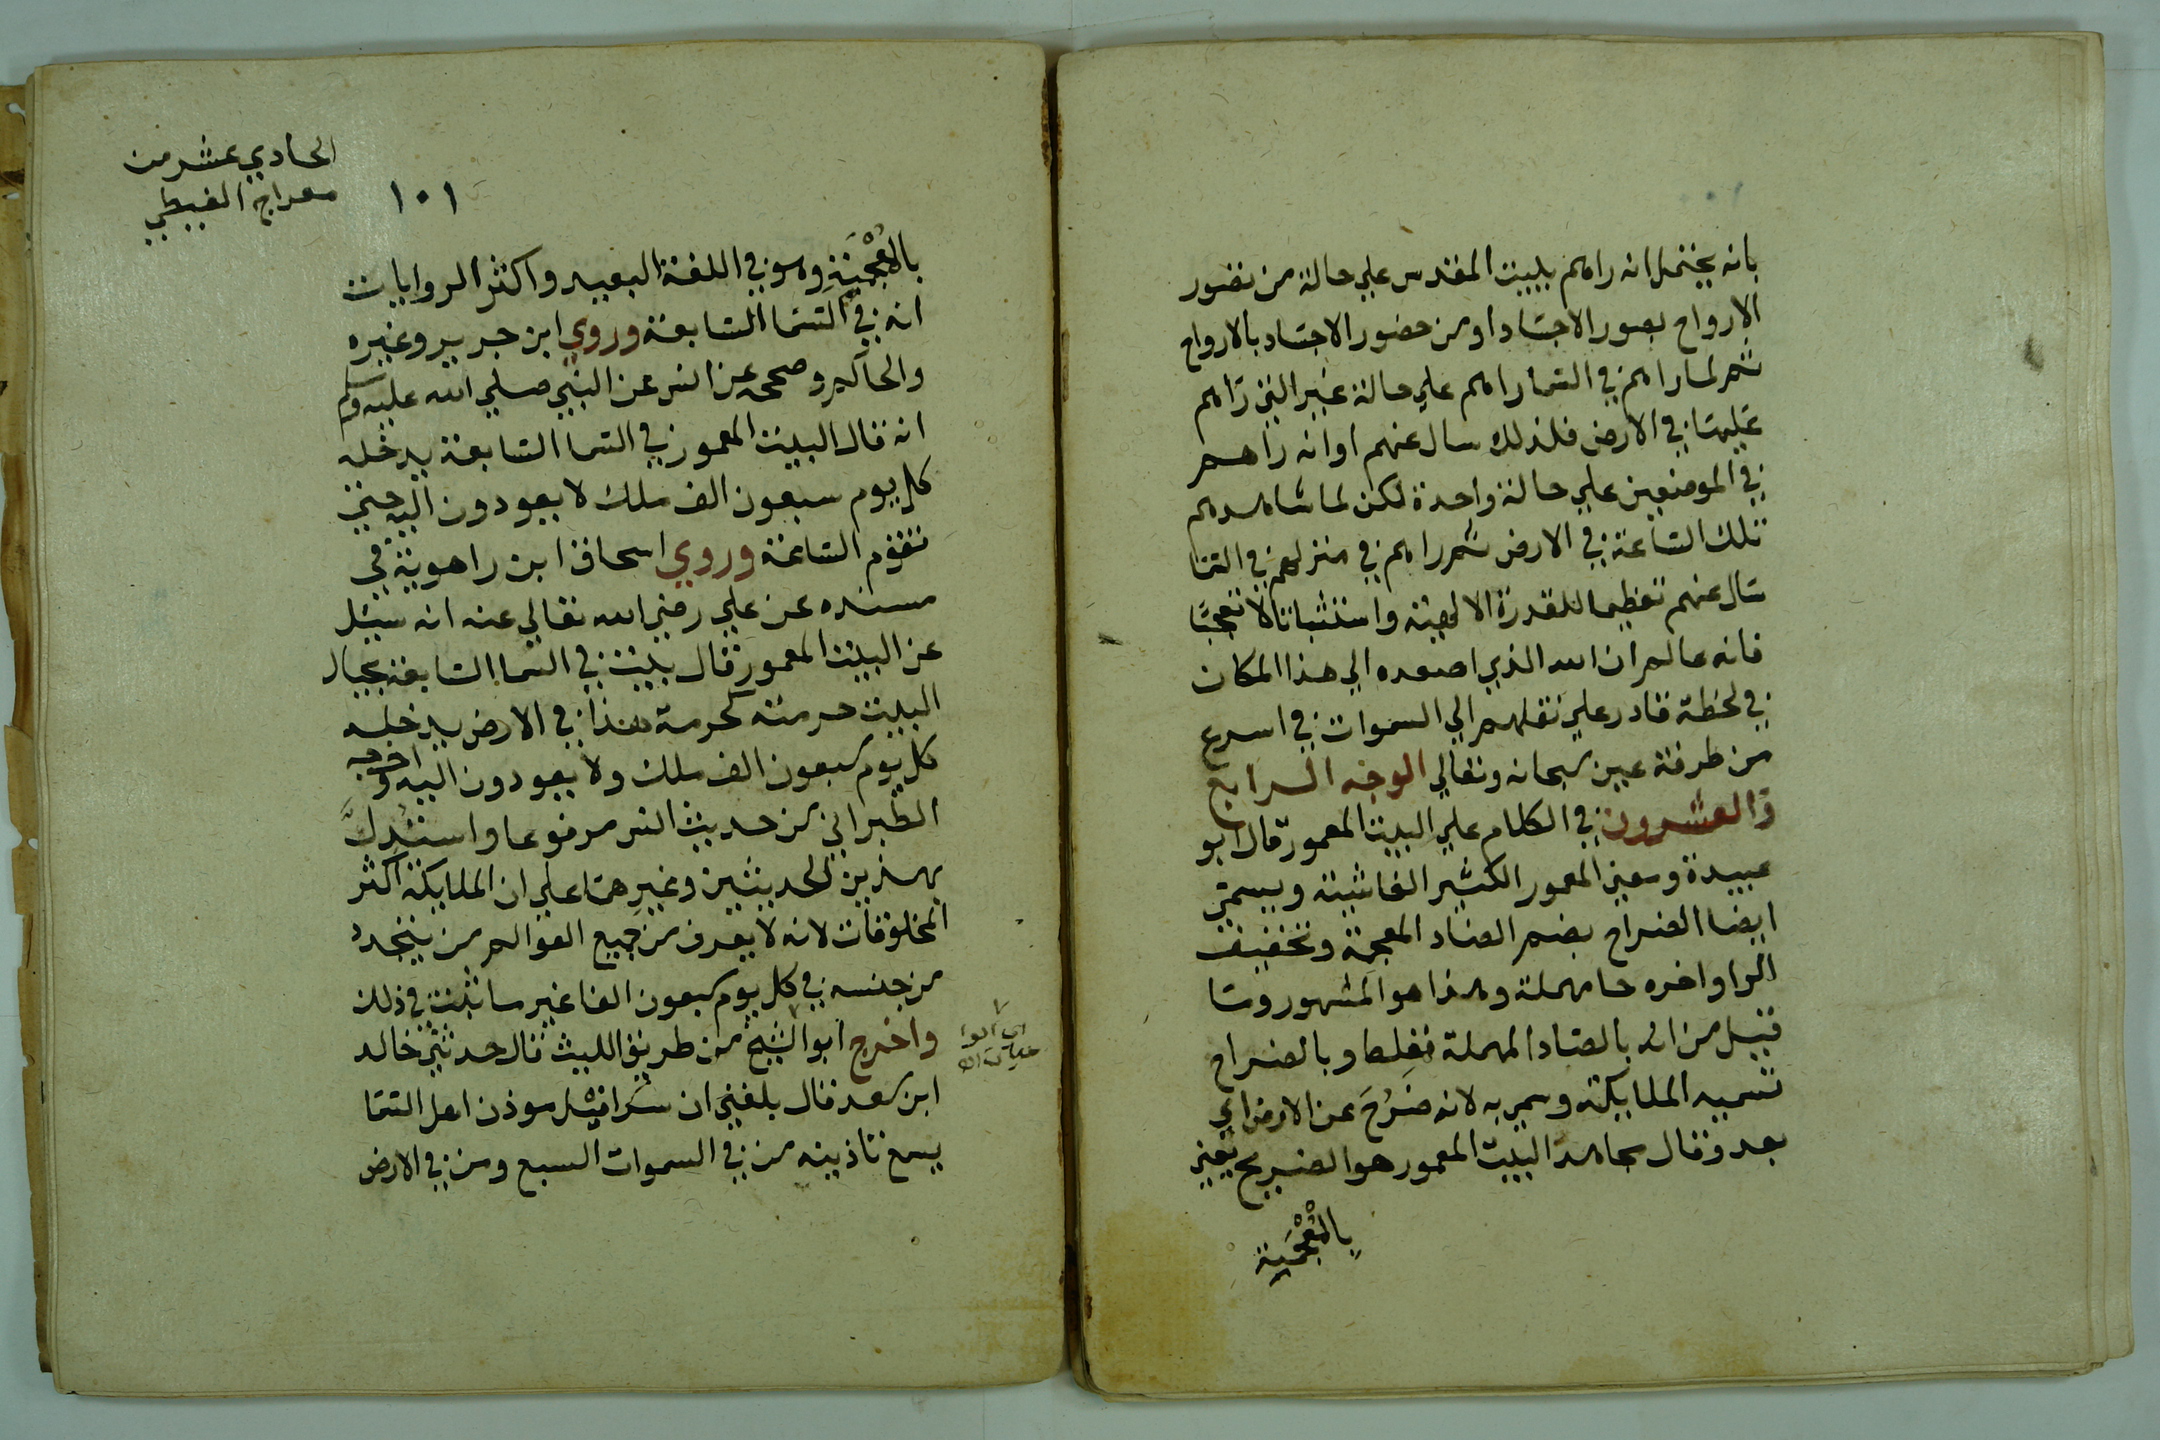 بانه يحتمل انه راهم ببيت المقدس علي حالة من تصور
الارواح بصور الاجساد او من حضور الاجساد بالارواح
ثم لما راهم في السما راهم علي حالة غير التي راهم
عليها في الارض فلذلك سال عنهم او انه راهم
في الموضعين علي حالة واحدة لكن لما شاهدهم
تلك الساعة في الارض ثم راهم في منزلهم في السما
سال عنهم تعظيما للقدرة الالهية واستثباتا لا تعجبا
فانه عالم ان الله الذي اصعده الي هذا المكان
في لحظة قادر علي نقلهم الي السموات في اسرع
من طرفة عين سبحانه وتعالي الوجه الرابع
والعشرون في الكلام علي البيت المعمور قال ابو
عبيدة ومعني المعمور الكثير الغاشية ويسمي
ايضا الضراح بضم الضاد المعجمة وتخفيف
الرا واخره حا مهملة وهذا هو المشهور وما
قيل من انه بالصاد المهملة فغلط وبالضراح
تسميه الملايكة وسمي به لانه ضَرُحَ عن الارض اي
بعد وقال مجاهد البيت المعمور هو الضريح يعني
بالمُعْجَمَة
الحادي عشر من
معراج الغيطي
١٠١
بالمُعْجَمَةِ وهو في اللغة البعيد واكثر الروايات
انه في السما السابعة وروي ابن جرير وغيره
والحاكم وصححه عن انس عن النبي صلي الله عليه وسلم
انه قال البيت المعمور في السما السابعة يدخله
كل يوم سبعون الف ملك لا يعودون اليه حتي
تقوم الساعة وروي اسحاق ابن راهوية في
مسنده عن علي رضي الله تعالي عنه انه سئل
عن البيت المعمور قال بيت في السما السابعة بحيال
البيت حرمته كحرمة هذا في الارض يدخله
كل يوم سبعون الف ملك ولا يعودون اليه واخرجه
الطبراني من حديث انس مرفوعا واستُدِلَّ
بهذين الحديثين وغيرهما علي ان الملايكة اكثر
المخلوقات لانه لا يعرف من جميع العوالم من يتجدد
من جنسه في كل يوم سبعون الفا غير ما ثبت في ذلك
واخرج ابو الشيخ من طريق الليث قال حدثني خالد
ابن سعد قال بلغني ان سرافيل موذن اهل السما
يسمع تاذينه من في السموات السبع ومن في الارض